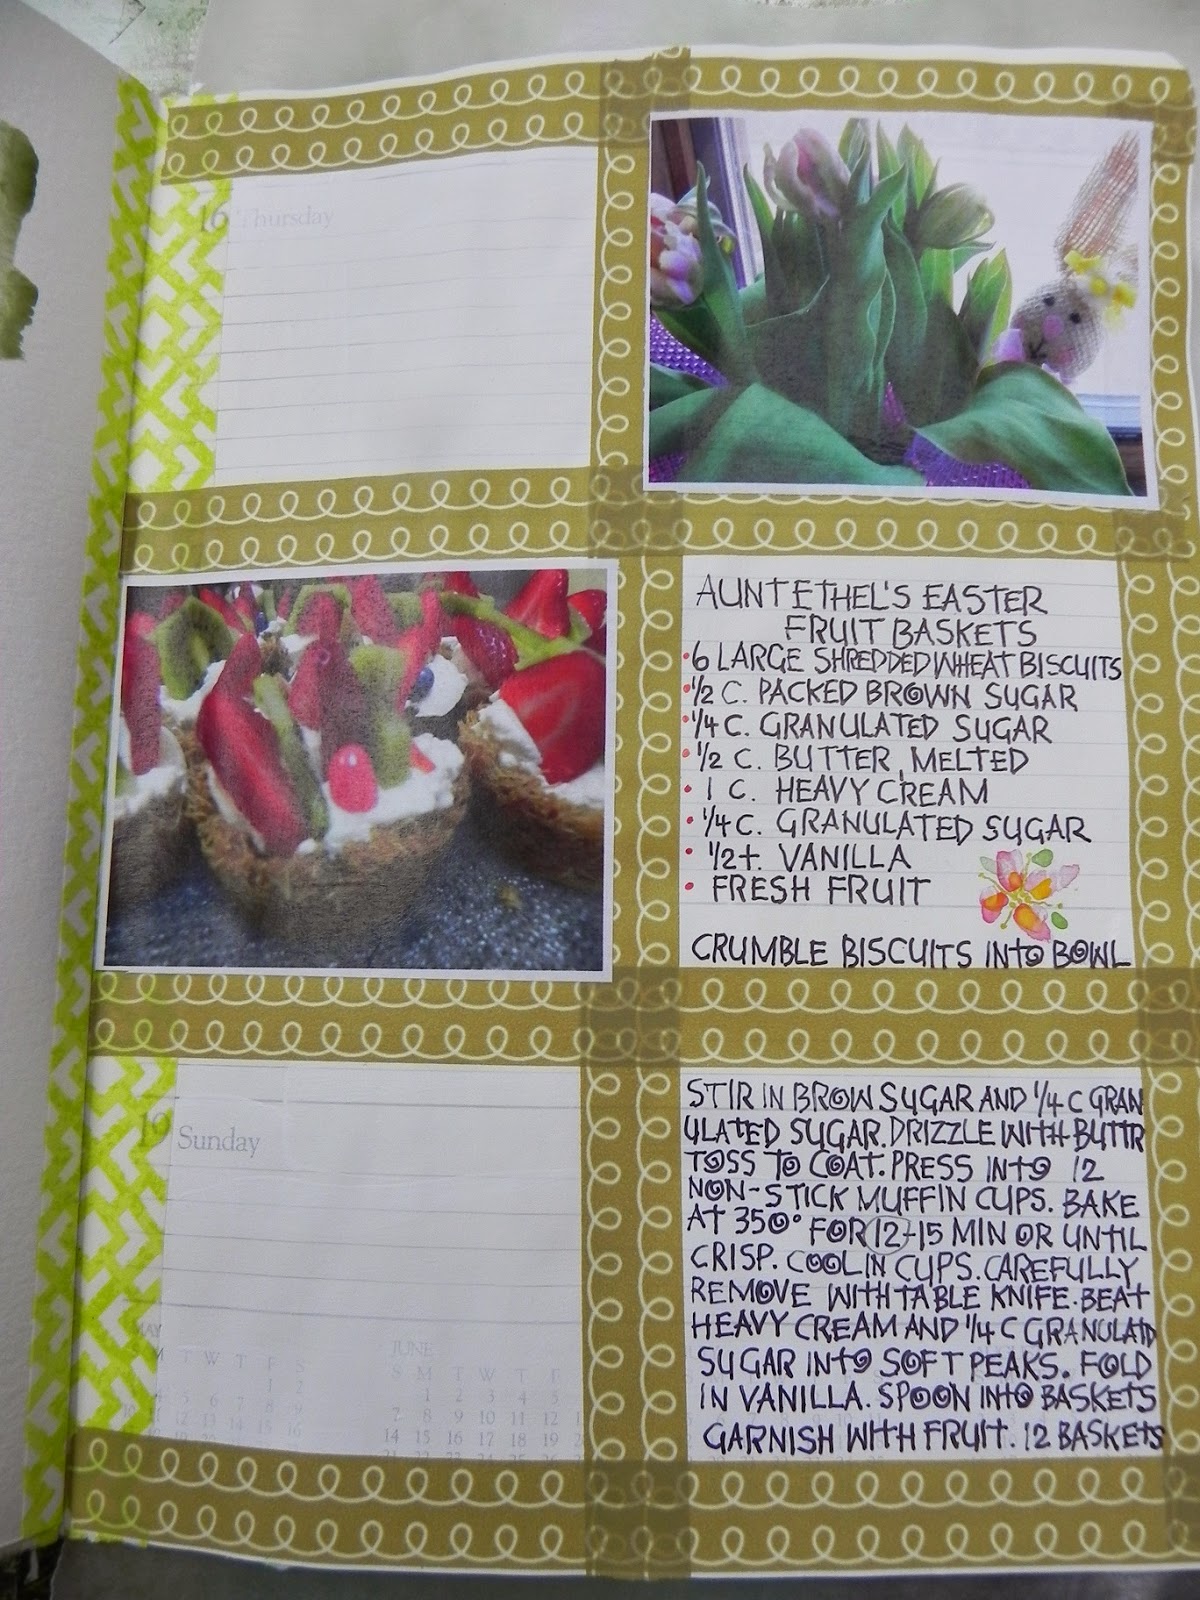 16 Thursday
AUNT ETHEL'S EASTER
FRUIT BASKETS
• 6 LARGE SHREDDED WHEAT BISCUITS
• 1/2 C. PACKED BROWN SUGAR
• 1/4 C. GRANULATED SUGAR
• 1/2 C. BUTTER, MELTED
• 1 C. HEAVY CREAM
• 1/4 C. GRANULATED SUGAR
• 1/2 t. VANILLA
• FRESH FRUIT
CRUMBLE BISCUITS INTO BOWL
19 Sunday
STIR IN BROW SUGAR AND 1/4 C GRAN
ULATED SUGAR. DRIZZLE WITH BUTTR
TOSS TO COAT. PRESS INTO 12
NON-STICK MUFFIN CUPS. BAKE
AT 350° FOR 12-15 MIN OR UNTIL
CRISP. COOL IN CUPS. CAREFULLY
REMOVE WITH TABLE KNIFE. BEAT
HEAVY CREAM AND 1/4 C GRANULATD
SUGAR INTO SOFT PEAKS. FOLD
IN VANILLA. SPOON INTO BASKETS
GARNISH WITH FRUIT. 12 BASKETS
MAY
M T W T F S
1 2
JUNE
S M T W T F
1 2 3 4 5
7 8 9 10 11 12
14 15 16 17 18 19